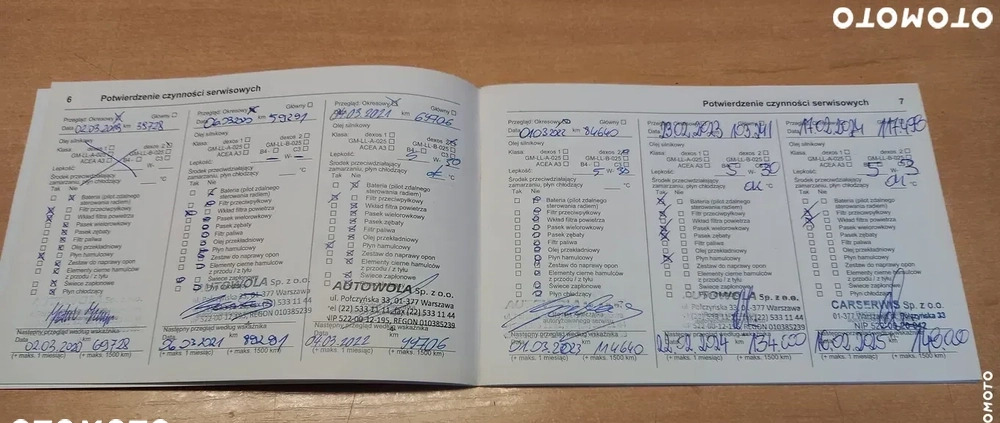 OTOMOTO
6 Potwierdzenie czynności serwisowych
Przegląd: Okresowy Główny
Data 02.03.2019 km 35728
Olej silnikowy
Klasa: dexos 1 dexos 2
GM-LL-A-025 GM-LL-B-025
ACEA A3 B4 C3
Lepkość: W-
Środek przeciwdziałający
zamarzaniu, płyn chłodzący °C
Tak Nie
Bateria (pilot zdalnego
sterowania radiem)
Filtr przeciwpyłkowy
Wkład filtra powietrza
Pasek wielorowkowy
Pasek zębaty
Filtr paliwa
Olej przekładniowy
Płyn hamulcowy
Zestaw do naprawy opon
Elementy cierne hamulców
z przodu / z tyłu
Świece zapłonowe
Płyn chłodzący
Następny przegląd według wskaźnika
Data 02.03.2020 km 69728
(+ maks. 1 miesiąc) (+ maks. 1500 km)
Przegląd: Okresowy Główny
Data 06.03.2020 km 59291
Olej silnikowy
Klasa: dexos 1 dexos 2
GM-LL-A-025 GM-LL-B-025
ACEA A3 B4 C3
Lepkość: W-
Środek przeciwdziałający
zamarzaniu, płyn chłodzący °C
Tak Nie
Bateria (pilot zdalnego
sterowania radiem)
Filtr przeciwpyłkowy
Wkład filtra powietrza
Pasek wielorowkowy
Pasek zębaty
Filtr paliwa
Olej przekładniowy
Płyn hamulcowy
Zestaw do naprawy opon
Elementy cierne hamulców
z przodu / z tyłu
Świece zapłonowe
AUTOWOLA Sp. z o.o.
ul. Połczyńska 33, 01-377 Warszawa
522-00-12-195, REGON 010385239
Następny przegląd według wskaźnika
06.03.2021 89291
(+ maks. 1 miesiąc) (+ maks. 1500 km)
Przegląd: Okresowy Główny
Data 04.03.2021 km 69706
Olej silnikowy
Klasa: dexos 1 dexos 2
GM-LL-A-025 GM-LL-B-025
ACEA A3 B4 C3
Lepkość: 5 W- 30
Środek przeciwdziałający
zamarzaniu, płyn chłodzący ok °C
Tak Nie
Bateria (pilot zdalnego
sterowania radiem)
Filtr przeciwpyłkowy
Wkład filtra powietrza
Pasek wielorowkowy
Pasek zębaty
Filtr paliwa
Olej przekładniowy
Płyn hamulcowy
Zestaw do naprawy opon
Elementy cierne hamulców
z przodu / z tyłu
Świece zapłonowe
AUTOWOLA Sp. z o.o.
ul. Połczyńska 33, 01-377 Warszawa
tel (22) 533 11 11, fax (22) 533 11 44
NIP 522-00-12-195, REGON 010385239
Następny przegląd według wskaźnika
04.03.2022 99706
(+ maks. 1 miesiąc) (+ maks. 1500 km)
Potwierdzenie czynności serwisowych 7
Przegląd: Okresowy Główny
Data 01.03.2022 km 84640
Olej silnikowy
Klasa: dexos 1 dexos 2
GM-LL-A-025 GM-LL-B-025
ACEA A3 B4 C3
Lepkość: 5 W- 30
Środek przeciwdziałający
zamarzaniu, płyn chłodzący °C
Tak Nie
Bateria (pilot zdalnego
sterowania radiem)
Filtr przeciwpyłkowy
Wkład filtra powietrza
Pasek wielorowkowy
Pasek zębaty
Filtr paliwa
Olej przekładniowy
Płyn hamulcowy
Zestaw do naprawy opon
Elementy cierne hamulców
z przodu / z tyłu
Świece zapłonowe
Płyn chłodzący
Następny przegląd według wskaźnika
01.03.2023 km 114640
(+ maks. 1 miesiąc) (+ maks. 1500 km)
23.02.2023 103241
Olej silnikowy
Klasa: dexos 1 dexos 2
GM-LL-A-025 GM-LL-B-025
ACEA A3 B4 C3
Lepkość: 5 W- 30
Środek przeciwdziałający
zamarzaniu, płyn chłodzący ok °C
Tak Nie
Bateria (pilot zdalnego
sterowania radiem)
Filtr przeciwpyłkowy
Wkład filtra powietrza
Pasek wielorowkowy
Pasek zębaty
Filtr paliwa
Olej przekładniowy
Płyn hamulcowy
Zestaw do naprawy opon
Elementy cierne hamulców
z przodu / z tyłu
Świece zapłonowe
Płyn chłodzący
AUTOWOLA Sp. z o.o.
Następny przegląd według wskaźnika
22.02.2024 134000
(+ maks. 1 miesiąc) (+ maks. 1500 km)
17.02.2024 117490
Olej silnikowy
Klasa: dexos 1 dexos 2
GM-LL-A-025 GM-LL-B-025
ACEA A3 B4 C3
Lepkość: 5 W-
Środek przeciwdziałający
zamarzaniu, płyn chłodzący ok °C
Tak Nie
Bateria (pilot zdalnego
sterowania radiem)
Filtr przeciwpyłkowy
Wkład filtra powietrza
Pasek wielorowkowy
Pasek zębaty
Filtr paliwa
Olej przekładniowy
Płyn hamulcowy
Zestaw do naprawy opon
Elementy cierne hamulców
z przodu / z tyłu
Świece zapłonowe
Płyn chłodzący
CARSERWIS Sp. z o.o.
01-377 Warszawa, ul. Połczyńska 33
Następny przegląd według wskaźnika
16.02.2025
(+ maks. 1 miesiąc) (+ maks. 1500 km)
OTOMOTO
OTOMOTO